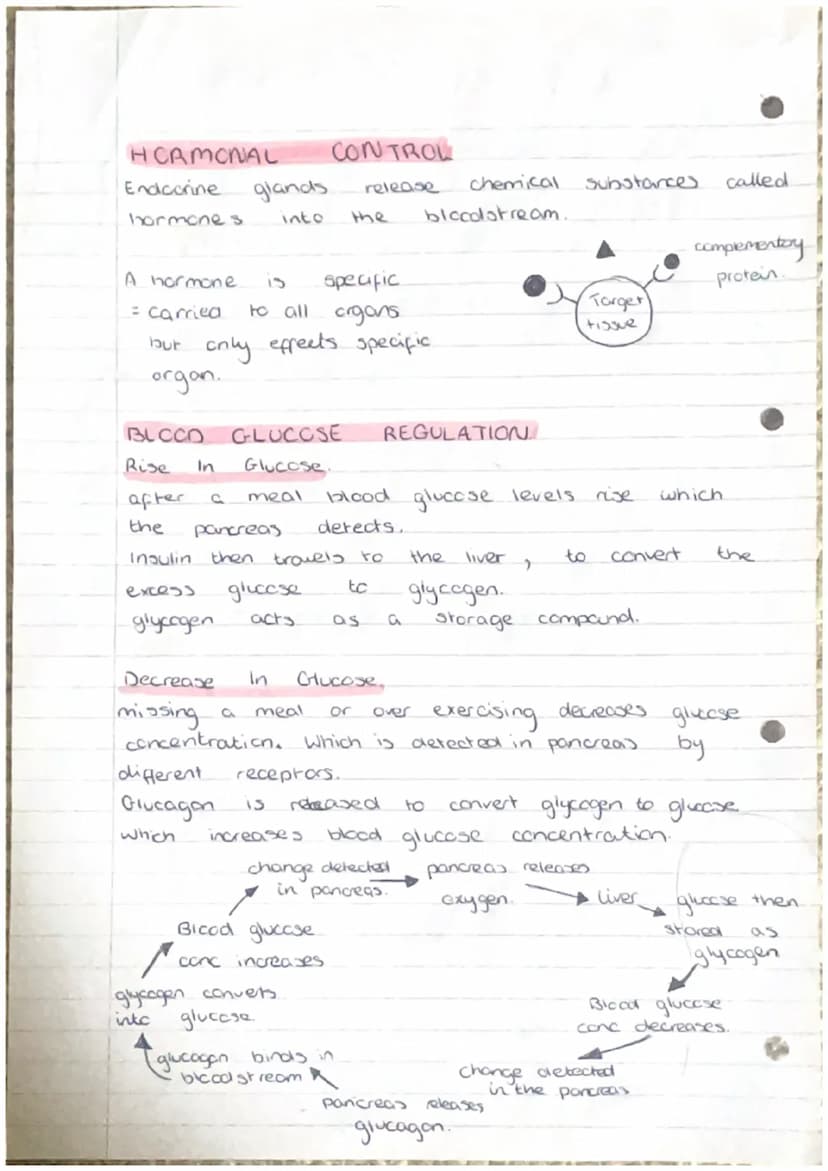 HORMONAL CONTROL
Endocrine glands release chemical substances called
hormones into the bloodstream.
complementory
protein.
A hormone is specific
= carried to all organs
but only effects specific
organ.
Target
tissue
BLOOD GLUCOSE REGULATION
Rise In Glucose.
after a meal blood glucose levels rise which
the pancreas detects.
Insulin then travels to the liver, to convert the
excess glucose to glycogen.
glycogen acts as a storage compound.
Decrease In Glucose.
missing a meal or over exercising decreases glucose
concentration. Which is detected in pancreas by
different receptors.
Glucagon is released to convert glycogen to glucose
which increases blood glucose concentration.
change detected
in pancreas.
pancreas releases
oxygen.
liver
glucose then
stored as
glycogen
Blood glucose
conc decreases.
change detected
in the pancreas
pancreas releases
glucagon.
glucagon binds in
bloodstream
glycogen converts
into glucose
Blood glucose
conc increases